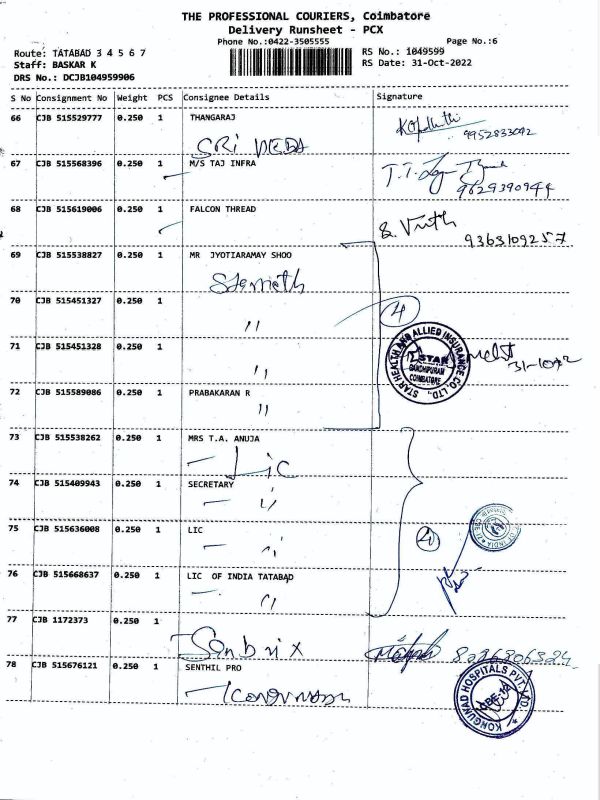 THE PROFESSIONAL COURIERS, Coimbatore
Delivery Runsheet - PCX
Phone No.:0422-3505555
Page No.:6
Route: TATABAD 3 4 5 6 7
RS No.: 1049599
Staff: BASKAR K
RS Date: 31-Oct-2022
DRS No.: DCJB104959906
S No Consignment No Weight PCS Consignee Details Signature
66 CJB 515529777 0.250 1 THANGARAJ
9952833092
SRI VEDA
67 CJB 515568396 0.250 1 M/S TAJ INFRA
9629390944
68 CJB 515619006 0.250 1 FALCON THREAD
9363109257
69 CJB 515538827 0.250 1 MR JYOTIARAMAY SHOO
70 CJB 515451327 0.250 1
4
"
71 CJB 515451328 0.250 1
STAR HEALTH AND ALLIED INSURANCE CO. LTD.,
STAR
GANDHIPURAM
COIMBATORE
"
72 CJB 515589086 0.250 1 PRABAKARAN R
"
73 CJB 515538262 0.250 1 MRS T.A. ANUJA
LIC
74 CJB 515409943 0.250 1 SECRETARY
"
75 CJB 515636008 0.250 1 LIC
"
76 CJB 515668637 0.250 1 LIC OF INDIA TATABAD
"
77 CJB 1172373 0.250 1
78 CJB 515676121 0.250 1 SENTHIL PRO
KONGUNAD HOSPITALS PVT LTD